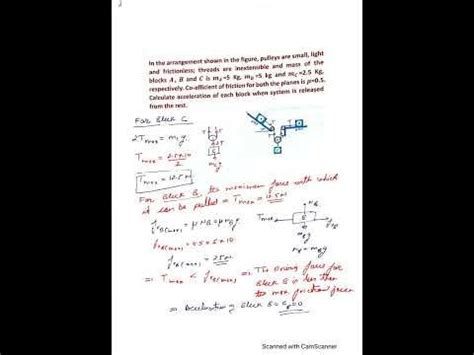 In the arrangement shown in the figure, pulleys are small, light
and frictionless; threads are inextensible and mass of the
blocks A, B and C is mₐ=5 Kg, m_b=5 kg and m_c=2.5 Kg,
respectively. Co-efficient of friction for both the planes is μ=0.5.
Calculate acceleration of each block when system is released
from the rest.
For Block C
2T max = m g
T max = 2.5×10 / 2
T max = 12.5 N
For Block B, the maximum force with which
it can be pulled = T max = 12.5N
f B(max) = μ N B = μ m B g
f B(max) = 0.5×5×10
f B(max) = 25N
⇒ T max < f B(max) ⇒ The driving force for
Block B is less than
the max friction force
⇒ Acceleration of Block B = a B = 0
N B
T max
B
m B g
N B = m B g
Scanned with CamScanner